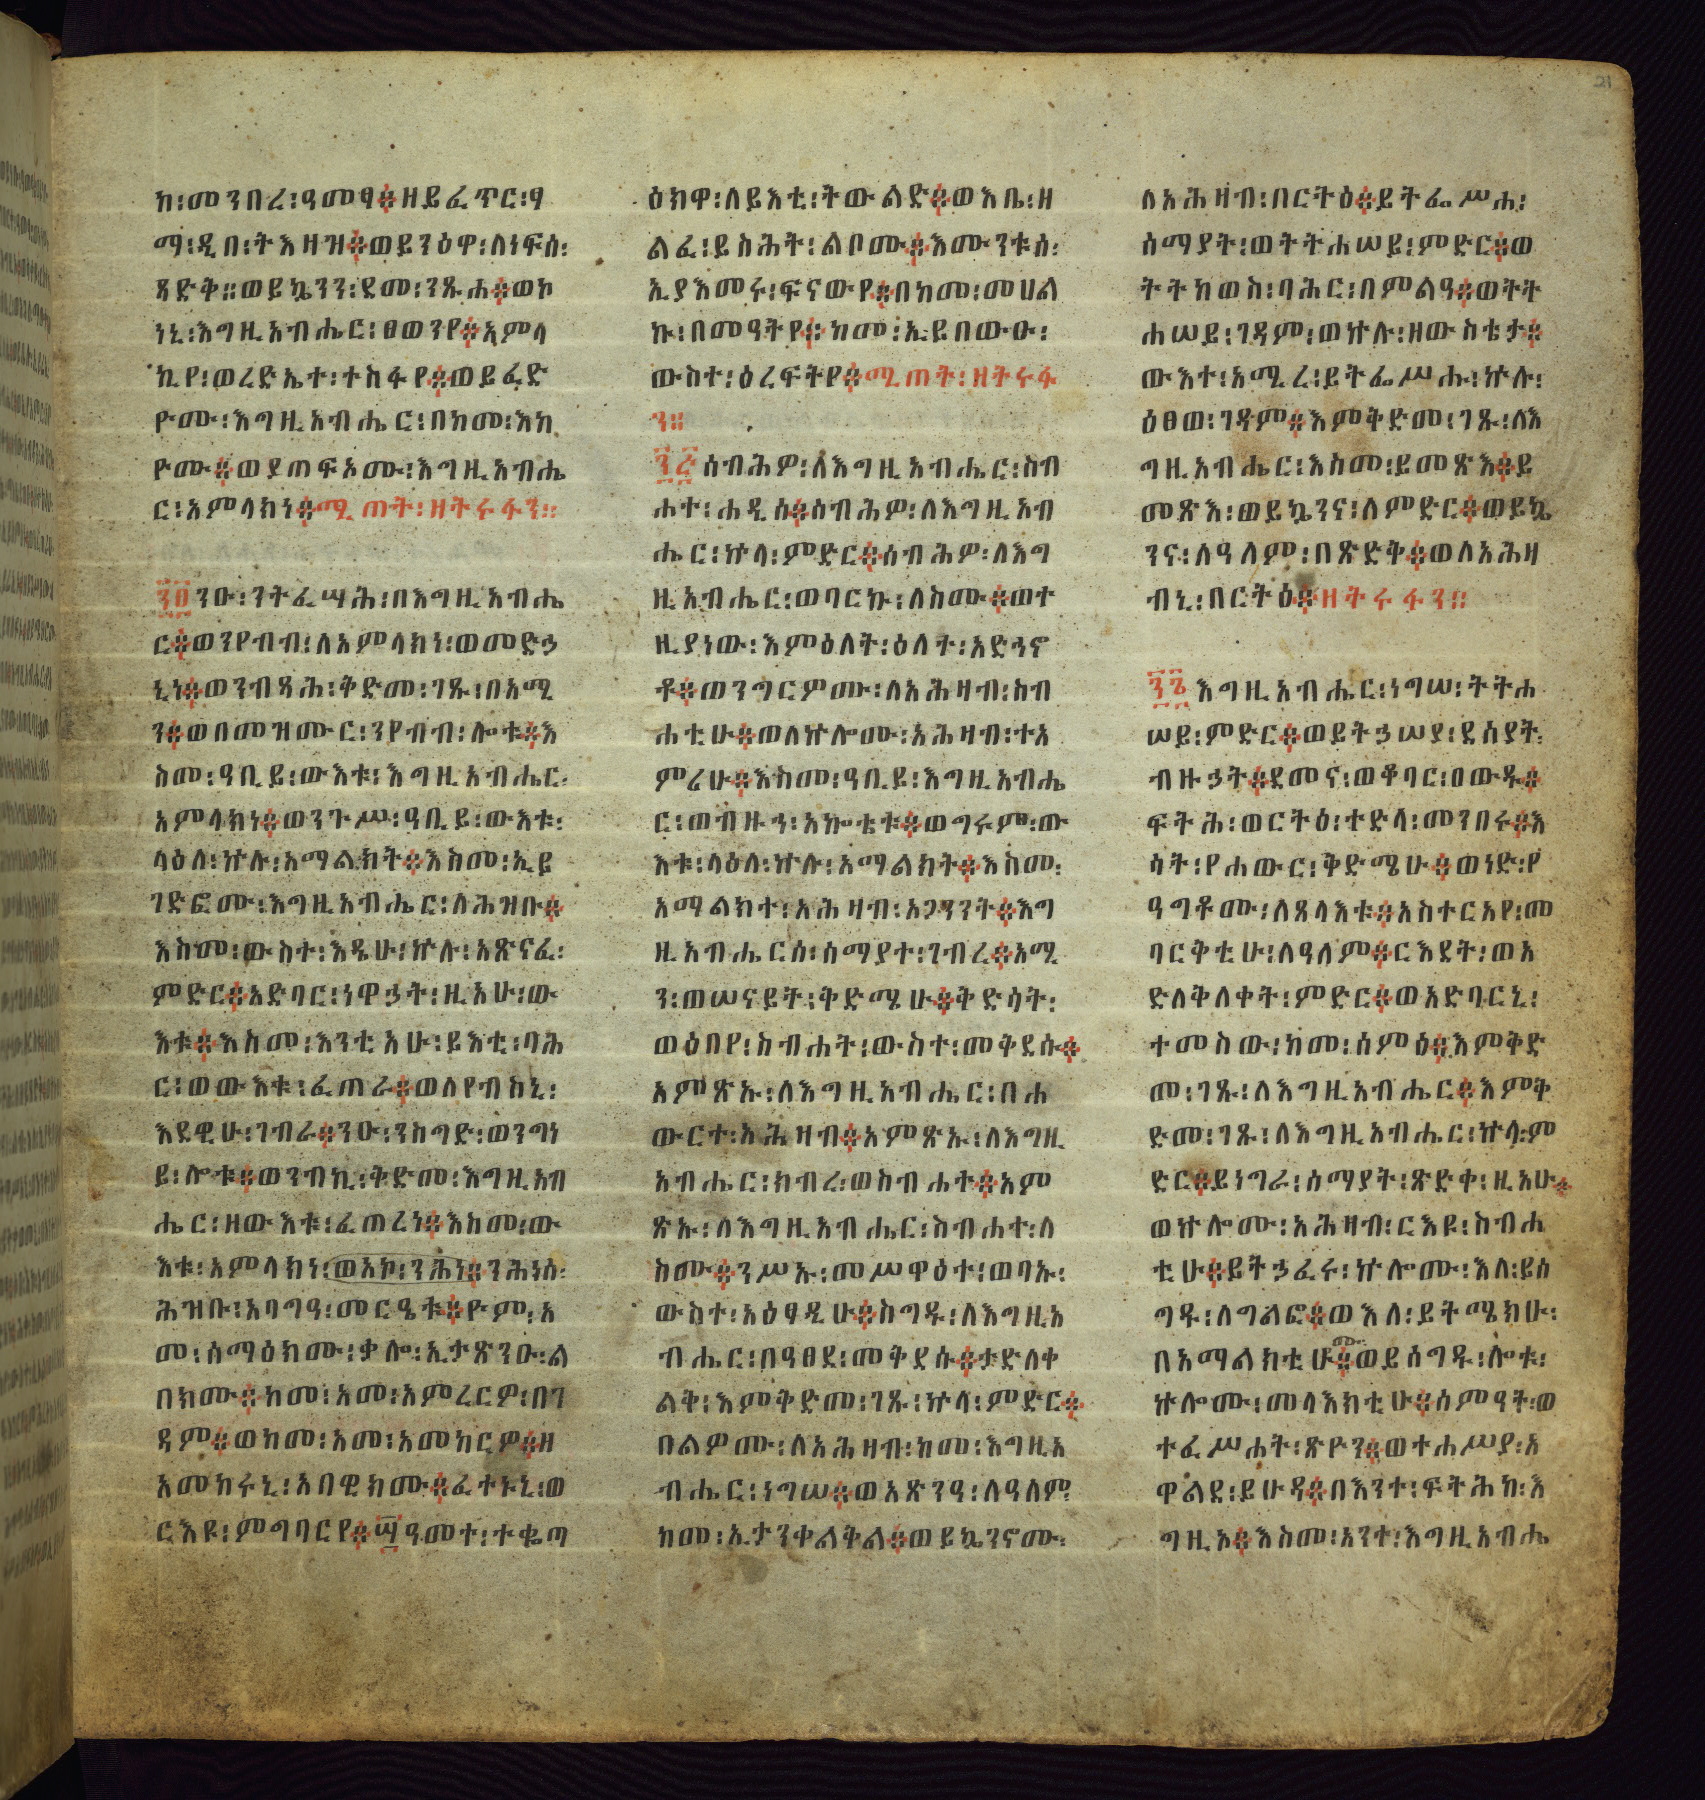 21
ከ፡መንበረ፡ዓመፃ፨ዘይፈጥር፡ፃ
ማ፡ዲበ፡ትእዛዝ፨ወይንዕዋ፡ለነፍሰ፡
ጻድቅ።ወይኴንን፡ደመ፡ንጹሐ፨ወኮ
ነኒ፡እግዚአብሔር፡ፀወንየ፨አምላ
ኪየ፡ወረድኤተ፡ተስፋየ፨ወይፈድ
ዮሙ፡እግዚአብሔር፡በከመ፡እከ
ዮሙ፨ወያጠፍኦሙ፡እግዚአብሔ
ር፡አምላክነ፨ሚጠት፡ዘትሩፋን።
፺፬ ንዑ፡ንትፈሣሕ፡በእግዚአብሔ
ር፨ወንየብብ፡ለአምላክነ፡ወመድኃ
ኒነ፨ወንብጻሕ፡ቅድመ፡ገጹ፡በአሚ
ን፨ወበመዝሙር፡ንየብብ፡ሎቱ፨እ
ስመ፡ዓቢይ፡ውእቱ፡እግዚአብሔር፡
አምላክነ፨ወንጉሥ፡ዓቢይ፡ውእቱ፡
ላዕለ፡ኵሉ፡አማልክት፨እስመ፡ኢይ
ገድፎሙ፡እግዚአብሔር፡ለሕዝቡ፨
እስመ፡ውስተ፡እዴሁ፡ኵሉ፡አጽናፈ፡
ምድር፨አድባር፡ነዋኃት፡ዚአሁ፡ው
እቱ፨እስመ፡እንቲአሁ፡ይእቲ፡ባሕ
ር፡ወውእቱ፡ፈጠራ፨ወለየብስኒ፡
እደዊሁ፡ገብራ፨ንዑ፡ንስግድ፡ወንግነ
ይ፡ሎቱ፨ወንብኪ፡ቅድመ፡እግዚአብ
ሔር፡ዘውእቱ፡ፈጠረነ፨እስመ፡ው
እቱ፡አምላክነ፡ወአኮ፡ንሕነ፨ንሕነሰ፡
ሕዝቡ፡አባግዓ፡መርዔቱ፨ዮም፡እ
መ፡ሰማዕክሙ፡ቃሎ፡ኢታጽንዑ፡ል
በክሙ፨ከመ፡አመ፡አምረርዎ፡በገ
ዳም፨ወከመ፡አመ፡አመከርዎ፨ዘ
አመከሩኒ፡አበዊክሙ፨ፈተኑኒ፡ወ
ርእዩ፡ምግባርየ፨፵ዓመተ፡ተቈጣ
ዕክዋ፡ለይእቲ፡ትውልድ፨ወእቤ፡ዘ
ልፈ፡ይስሕት፡ልቦሙ፨እሙንቱሰ፡
ኢያእመሩ፡ፍናውየ፨በከመ፡መሀል
ኩ፡በመዓትየ፨ከመ፡ኢይበውዑ፡
ውስተ፡ዕረፍትየ፨ሚጠት፡ዘትሩፋ
ን።
፺፭ ሰብሕዎ፡ለእግዚአብሔር፡ስብ
ሐተ፡ሐዲሰ፨ሰብሕዎ፡ለእግዚአብ
ሔር፡ኵላ፡ምድር፨ሰብሕዎ፡ለእግ
ዚአብሔር፡ወባርኩ፡ለስሙ፨ወተ
ዚያነው፡እምዕለት፡ዕለተ፡አድኅኖ
ቶ፨ወንግርዎሙ፡ለአሕዛብ፡ስብ
ሐቲሁ፨ወለኵሎሙ፡አሕዛብ፡ተአ
ምሪሁ፨እስመ፡ዓቢይ፡እግዚአብሔ
ር፡ወብዙኅ፡አኰቴቱ፨ወግሩም፡ው
እቱ፡ላዕለ፡ኵሉ፡አማልክት፨እስመ፡
አማልክተ፡አሕዛብ፡አጋንንት፨እግ
ዚአብሔርሰ፡ሰማያተ፡ገብረ፨አሚ
ን፡ወሠናይት፡ቅድሜሁ፨ቅድሳት፡
ወዕበየ፡ስብሐት፡ውስተ፡መቅደሱ፨
አምጽኡ፡ለእግዚአብሔር፡በሐ
ውርተ፡አሕዛብ፨አምጽኡ፡ለእግዚ
አብሔር፡ክብረ፡ወስብሐት፨አም
ጽኡ፡ለእግዚአብሔር፡ስብሐተ፡ለ
ስሙ፨ንሥኡ፡መሥዋዕተ፡ወባኡ፡
ውስተ፡አዕፃዲሁ፨ስግዱ፡ለእግዚአ
ብሔር፡በዓፀደ፡መቅደሱ፨ታድለቀ
ልቅ፡እምቅድመ፡ገጹ፡ኵላ፡ምድር፨
በልዎሙ፡ለአሕዛብ፡ከመ፡እግዚአ
ብሔር፡ነግሠ፨ወአጽንዓ፡ለዓለም፡
ከመ፡ኢታንቀልቅል፨ወይኴንኖሙ፡
ለአሕዛብ፡በርትዕ፨ይትፌሥሐ፡
ሰማያት፡ወትትሐሠይ፡ምድር፨ወ
ትትከወስ፡ባሕር፡በምልዓ፨ወትት
ሐሠይ፡ገዳም፡ወኵሉ፡ዘውስቴታ፨
ውእተ፡አሚረ፡ይትፌሥሑ፡ኵሉ፡
ዕፀወ፡ገዳም፨እምቅድመ፡ገጹ፡ለእ
ግዚአብሔር፡እስመ፡ይመጽእ፨ይ
መጽእ፡ወይኴንና፡ለምድር፨ወይኴ
ንና፡ለዓለም፡በጽድቅ፨ወለአሕዛ
ብኒ፡በርትዕ፨ዘትሩፋን።
፺፮ እግዚአብሔር፡ነግሠ፡ትትሐ
ሠይ፡ምድር፨ወይትኃሠያ፡ደሰያት፡
ብዙኃት፨ደመና፡ወቆባር፡ዐውዱ፨
ፍትሕ፡ወርትዕ፡ተድላ፡መንበሩ፨እ
ሳት፡የሐውር፡ቅድሜሁ፨ወነድ፡የ
ዓግቶሙ፡ለጸላእቱ፨አስተርአየ፡መ
ባርቅቲሁ፡ለዓለም፨ርእደት፡ወአ
ድለቅለቀት፡ምድር፨ወአድባርኒ፡
ተመስው፡ከመ፡ሰምዕ፨እምቅድ
መ፡ገጹ፡ለእግዚአብሔር፨እምቅ
ድመ፡ገጹ፡ለእግዚአብሔር፡ኵላ፡ም
ድር፨ይነግራ፡ሰማያት፡ጽድቀ፡ዚአሁ፨
ወኵሎሙ፡አሕዛብ፡ርእዩ፡ስብሐ
ቲሁ፨ይትኃፈሩ፡ኵሎሙ፡እለ፡ይሰ
ግዱ፡ለግልፎ፨ወእለ፡ይትሜክሁ፡
በአማልክቲሆሙ፨ወይሰግዱ፡ሎቱ፡
ኵሎሙ፡መላእክቲሁ፨ሰምዓት፡ወ
ተፈሥሐት፡ጽዮን፨ወተሐሥያ፡አ
ዋልደ፡ይሁዳ፨በእንተ፡ፍትሕከ፡እ
ግዚኦ፨እስመ፡አንተ፡እግዚአብሔ